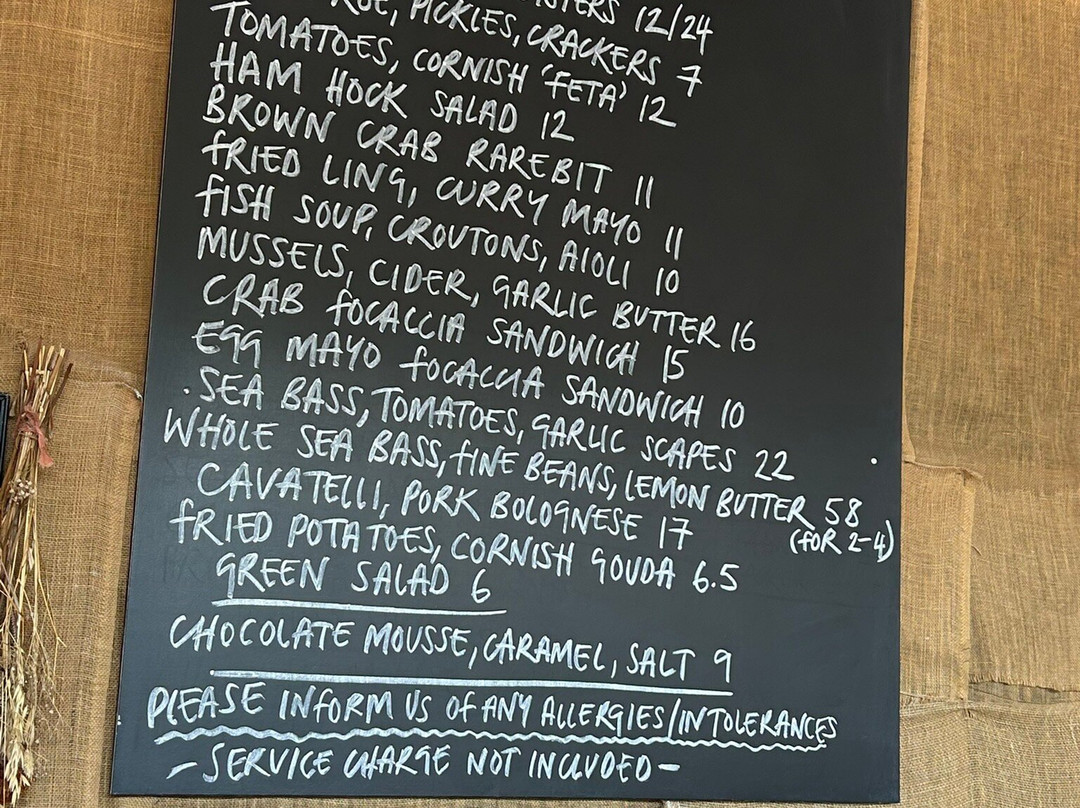 12/24
PICKLES, CRACKERS 7
TOMATOES, CORNISH 'FETA' 12
HAM HOCK SALAD 12
BROWN CRAB RAREBIT 11
FRIED LING, CURRY MAYO 11
FISH SOUP, CROUTONS, AIOLI 10
MUSSELS, CIDER, GARLIC BUTTER 16
CRAB FOCACCIA SANDWICH 15
EGG MAYO FOCACCIA SANDWICH 10
SEA BASS, TOMATOES, GARLIC SCAPES 22
WHOLE SEA BASS, FINE BEANS, LEMON BUTTER 58
(FOR 2-4)
CAVATELLI, PORK BOLOGNESE 17
FRIED POTATOES, CORNISH GOUDA 6.5
GREEN SALAD 6
CHOCOLATE MOUSSE, CARAMEL, SALT 9
PLEASE INFORM US OF ANY ALLERGIES/INTOLERANCES
- SERVICE CHARGE NOT INCLUDED -